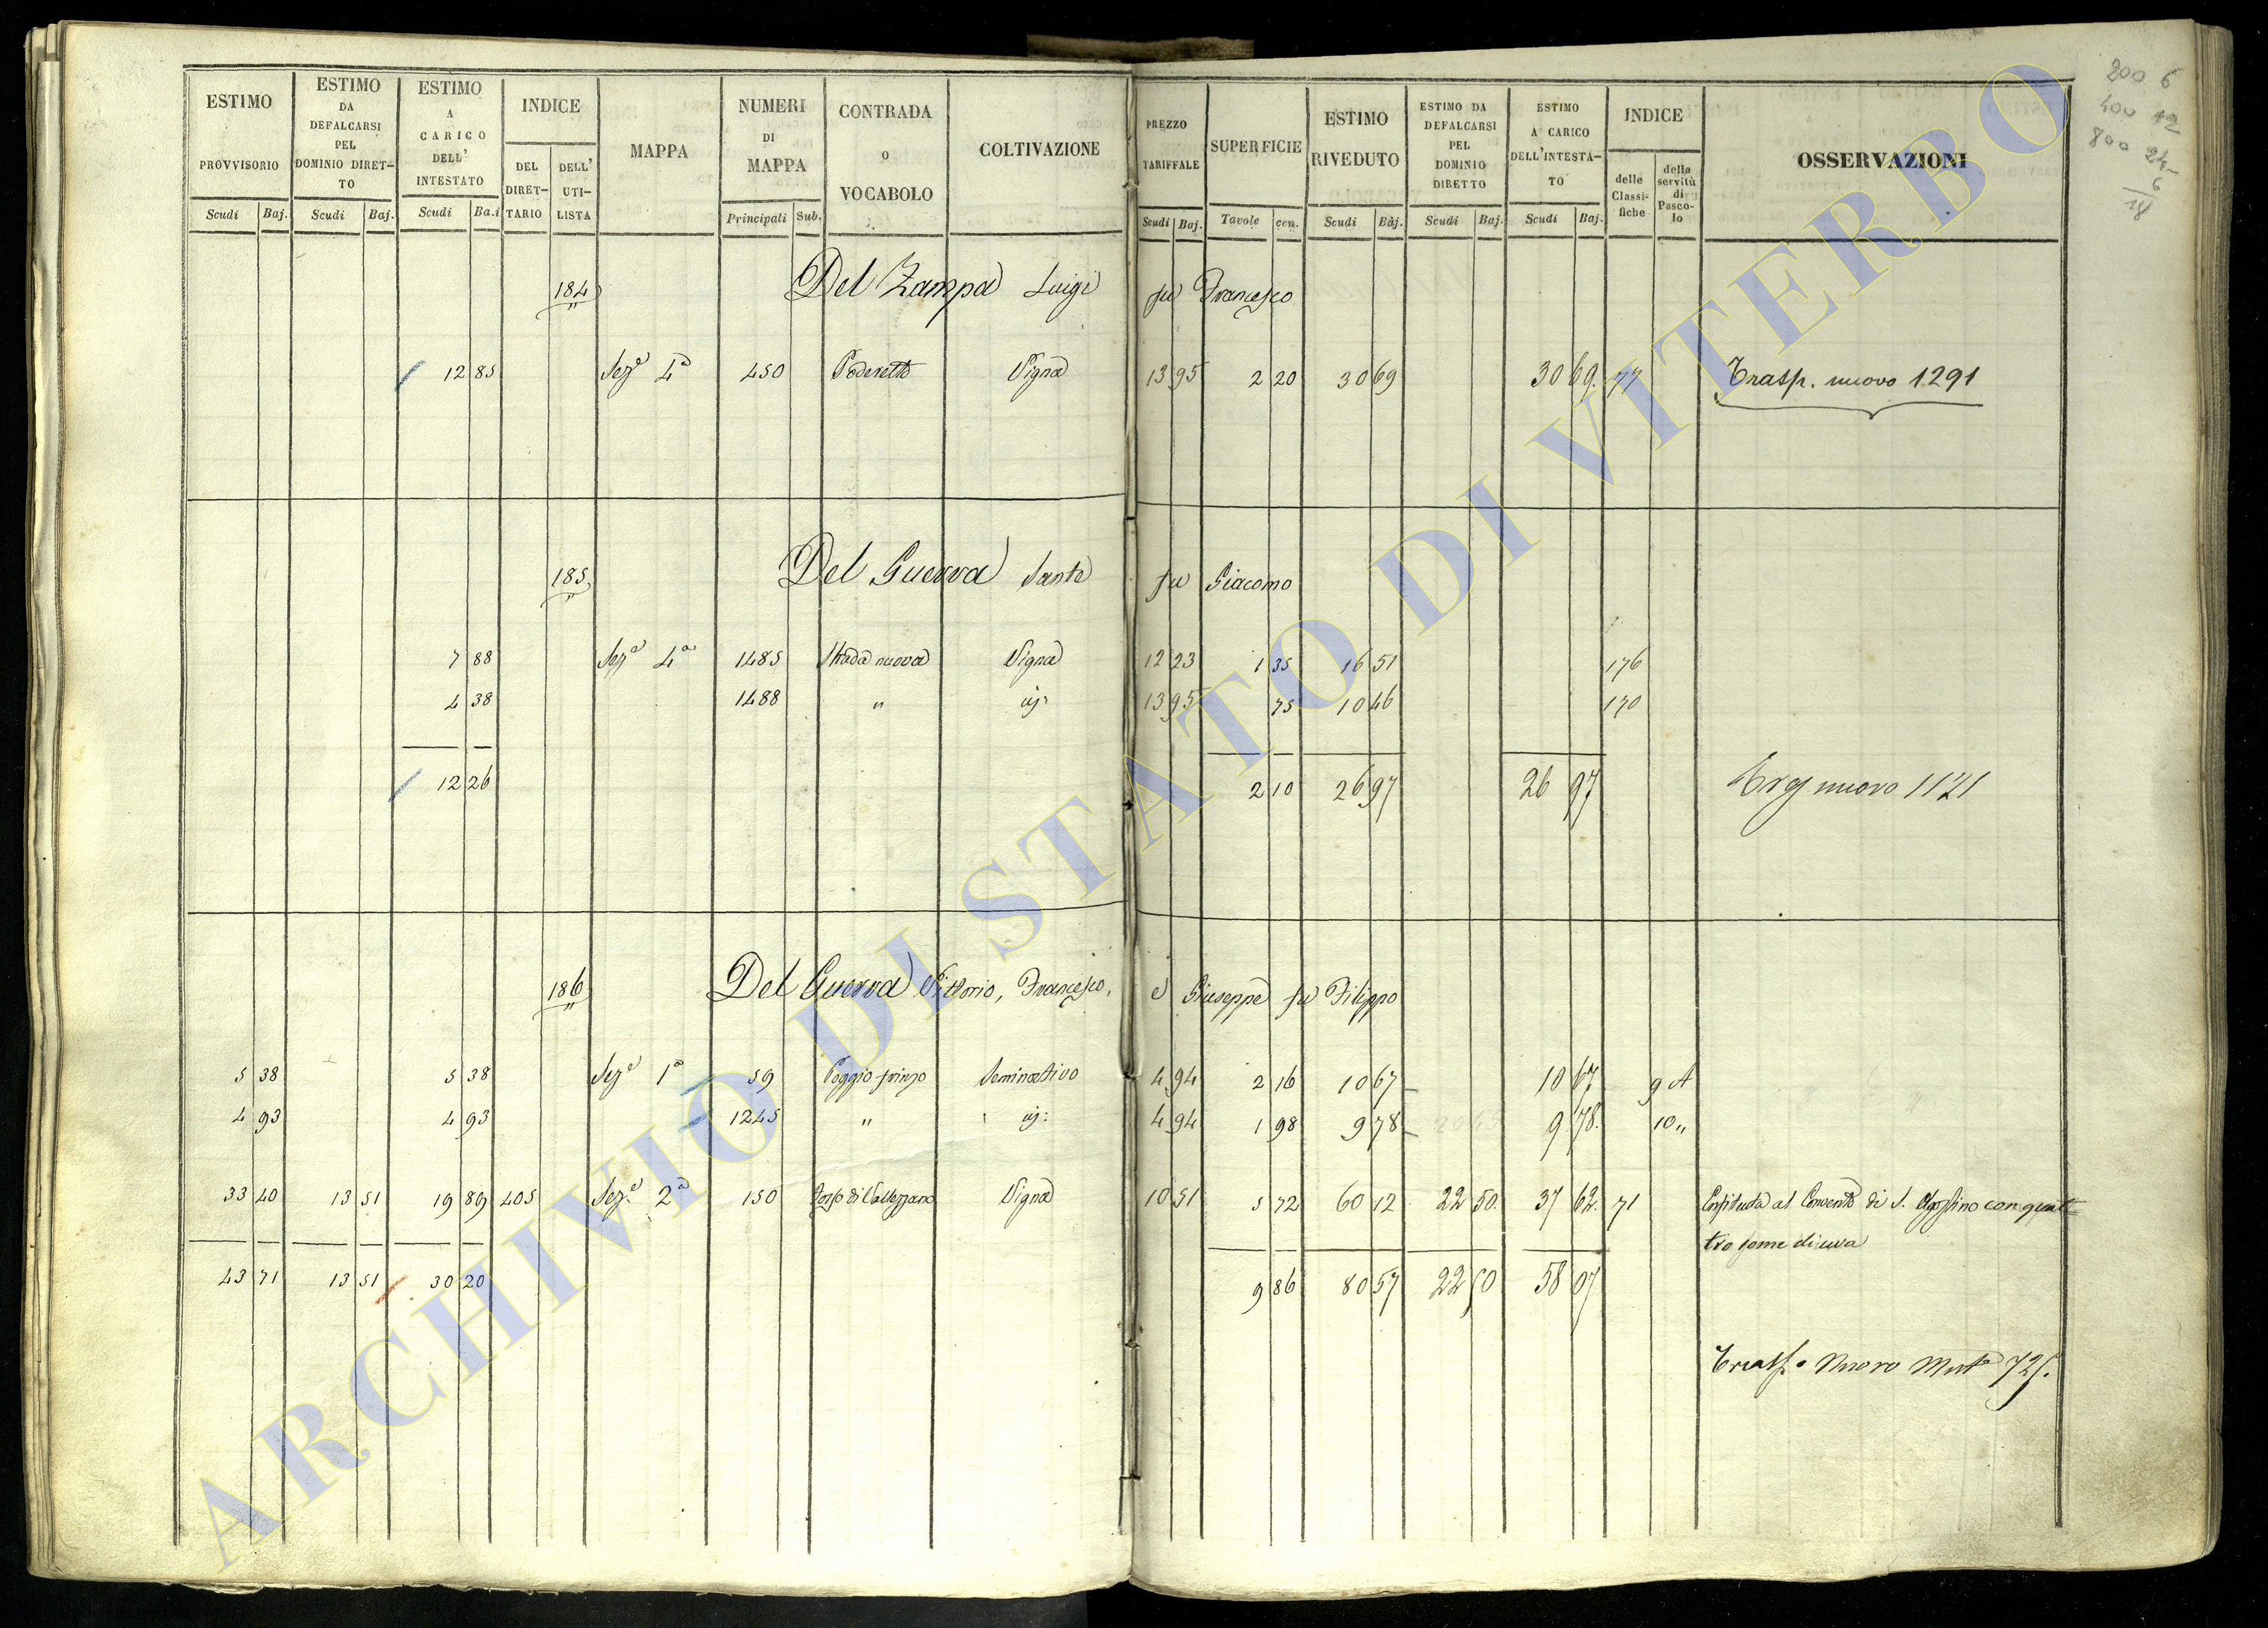 ESTIMO PROVVISORIO
Scudi Baj.
ESTIMO DA DEFALCARSI PEL DOMINIO DIRET-TO
Scudi Baj.
ESTIMO A CARICO DELL' INTESTATO
Scudi Ba.i
INDICE
DEL DIRET-TARIO
DELL' UTI-LISTA
MAPPA
NUMERI DI MAPPA
Principali Sub.
CONTRADA O VOCABOLO
COLTIVAZIONE
PREZZO TARIFFALE
Scudi Baj.
SUPERFICIE
Tavole cen.
ESTIMO RIVEDUTO
Scudi Baj.
ESTIMO DA DEFALCARSI PEL DOMINIO DIRETTO
Scudi Baj.
ESTIMO A CARICO DELL'INTESTA-TO
Scudi Baj.
INDICE
delle Classi-fiche
della servitù di Pasco-lo
OSSERVAZIONI
200 6
400 12
800 24
6
18
184 Del Zampa Luigi fu Francesco
12 85 Sez.e 4a 450 Poderetto Vigna 13 95 2 20 30 69 30 69. 77 Trasp. nuovo 1291
185 Del Guerra Sante fu Giacomo
7 88 Sez.e 4a 1485 Strada nuova Vigna 12 23 1 35 16 51 176
4 38 1488 " 13 95 75 10 46 170
12 26 2 10 26 97 26 97 nuovo 1121
186 Del Guerra Vittorio, Francesco, e Giuseppe fu Filippo
5 38 5 38 Sez.e 1a 59 Poggio Seminativo 4 94 2 16 10 67 10 67 9 A
4 93 4 93 1245 " 4 94 1 98 9 78 9 78. 10 "
33 40 13 51 19 89 405 Sez.e 2a 150 di Vallezzana Vigna 10 51 5 72 60 12 22 50. 37 62. 71 al Convento di S. Agostino con quat-
tro some di uva
43 71 13 51 30 20 9 86 80 57 22 50 58 07
Trasp.o Nuovo 725.
ARCHIVIO DI STATO DI VITERBO